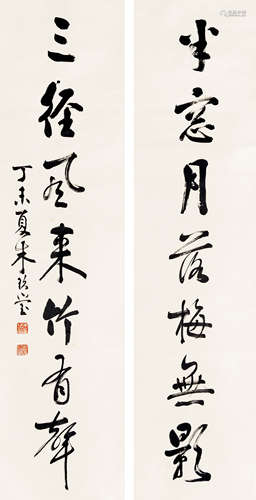 半窗月落梅無影
三徑風來竹有聲
丁未夏朱玖瑩